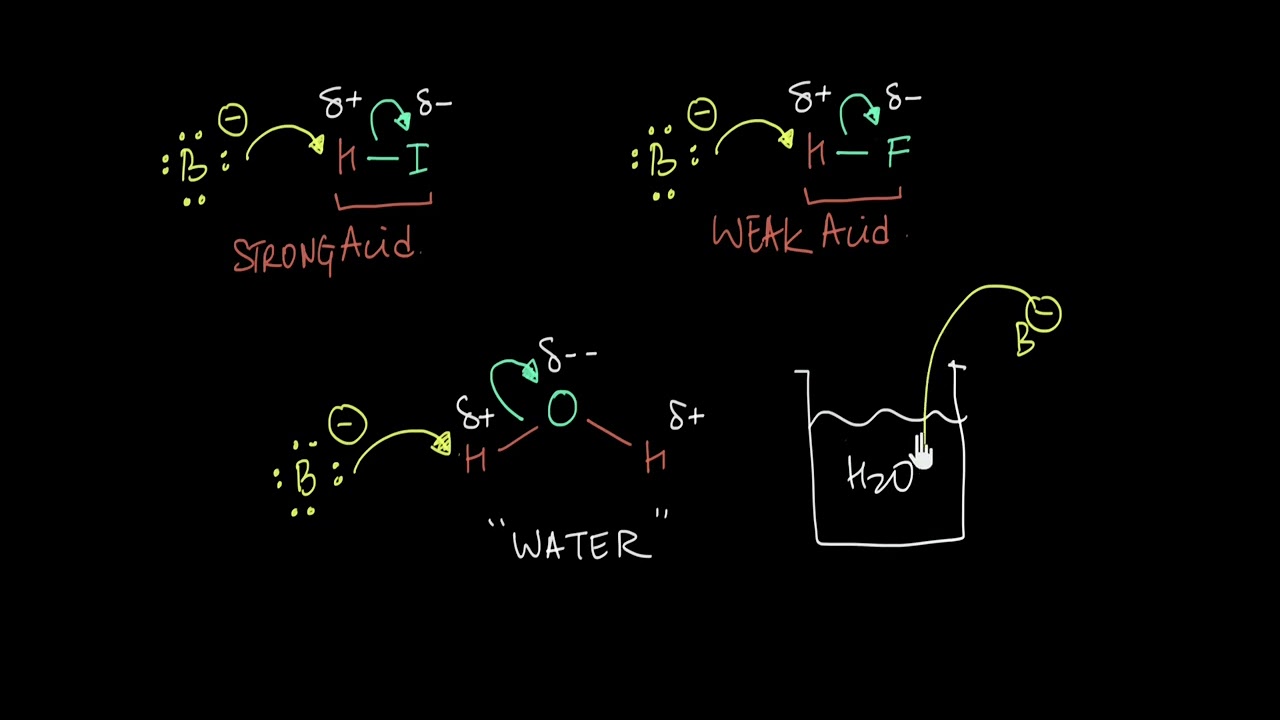 δ+ δ-
:B: ⊖ H—I
STRONG Acid.
δ+ δ-
:B: ⊖ H—F
WEAK Acid.
δ--
δ+ O δ+
:B: ⊖ H H
"WATER"
B ⊖
H2O